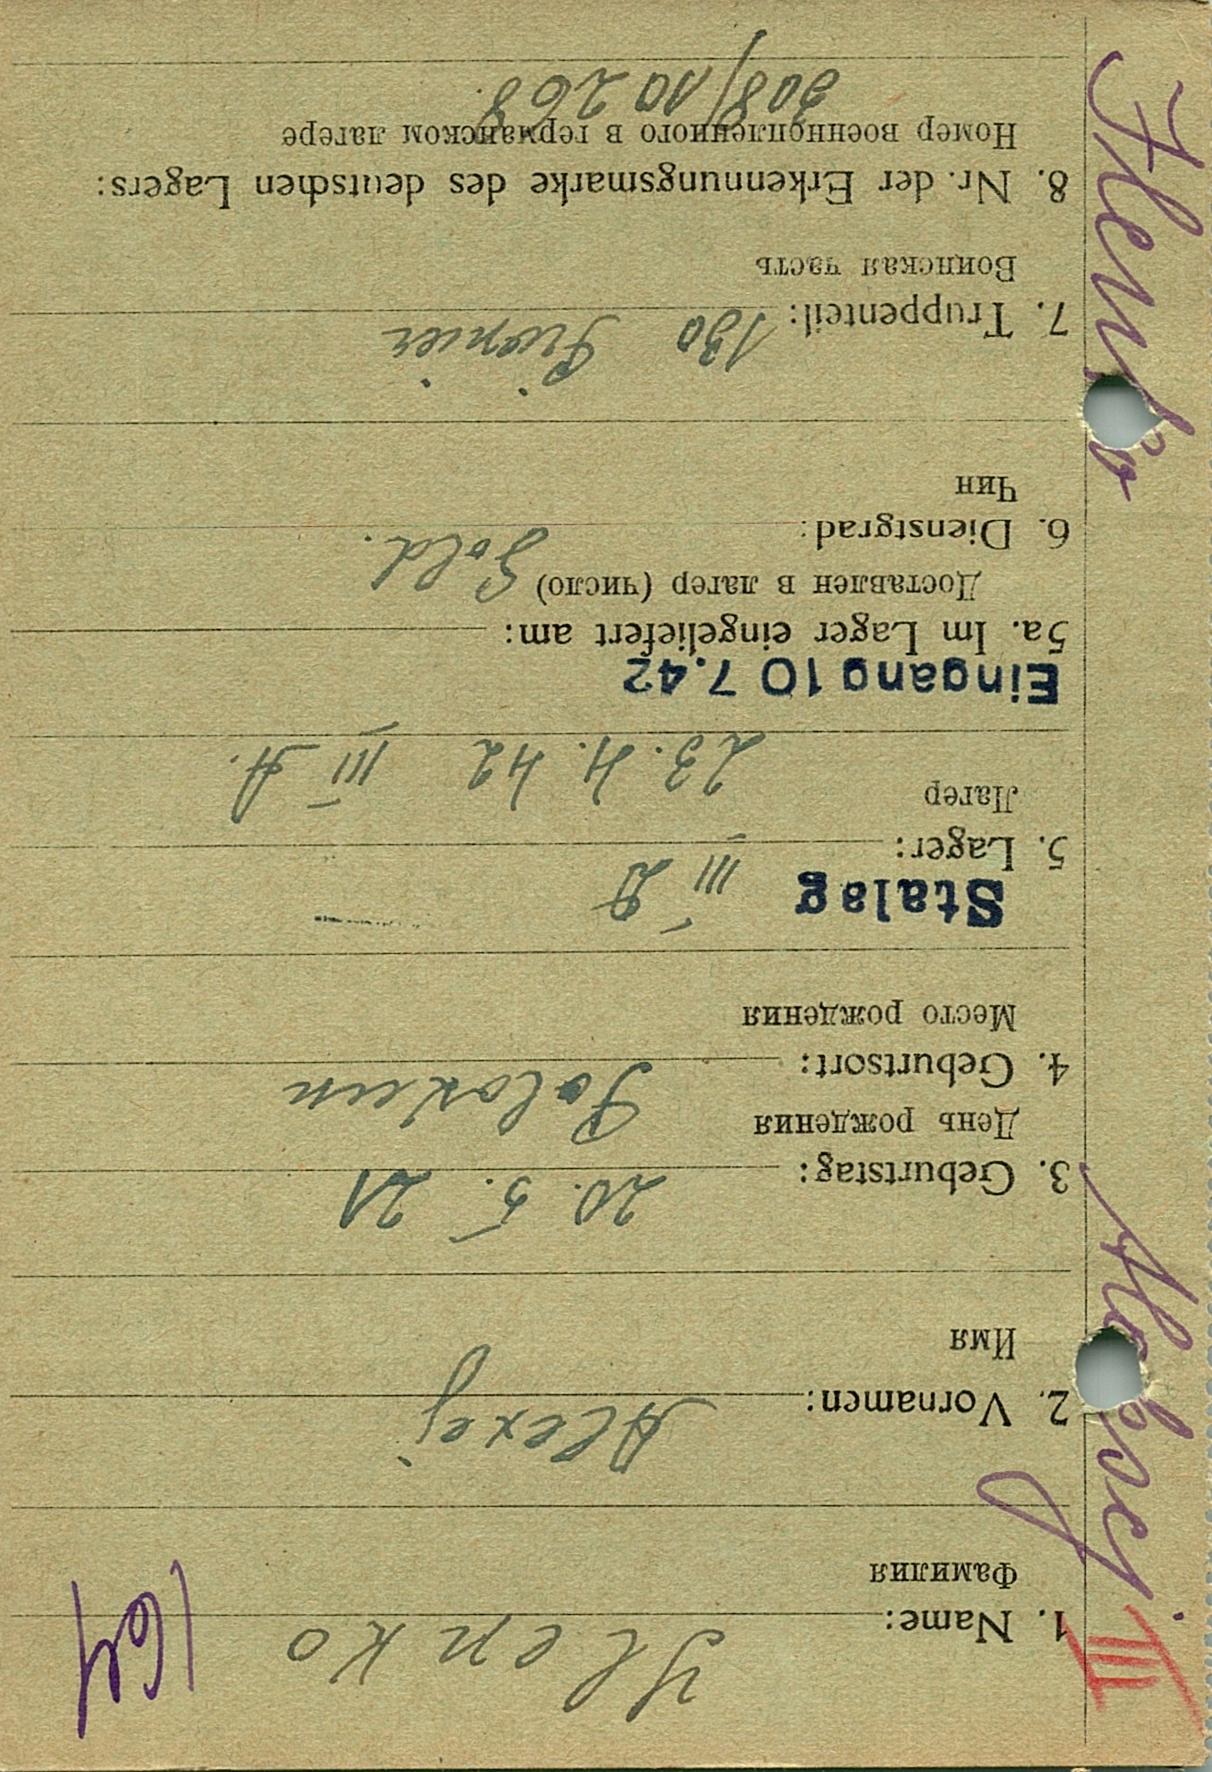 164
III
1. Name: Ylenko
Фамилия
2. Vornamen: Alexej
Имя
3. Geburtstag: 20. 5. 21
День рождения
4. Geburtsort:
Место рождения
Stalag III D
5. Lager:
Лагер
23. 4. 42 III A.
Eingang 10 7.42
5a. Im Lager eingeliefert am:
Доставлен в лагер (число)
6. Dienstgrad: Sold.
Чин
7. Truppenteil: 130 Pionier
Воинская часть
8. Nr. der Erkennungsmarke des deutschen Lagers:
Номер военнопленного в германском лагере
308/10268